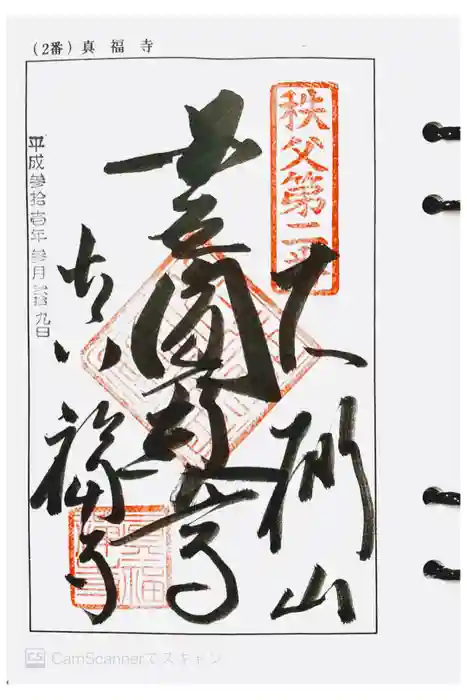 (2番) 真福寺
秩父第二番
大棚山
聖観世音
真福寺
平成参拾壱年参月弐拾九日
CS CamScannerでスキャン